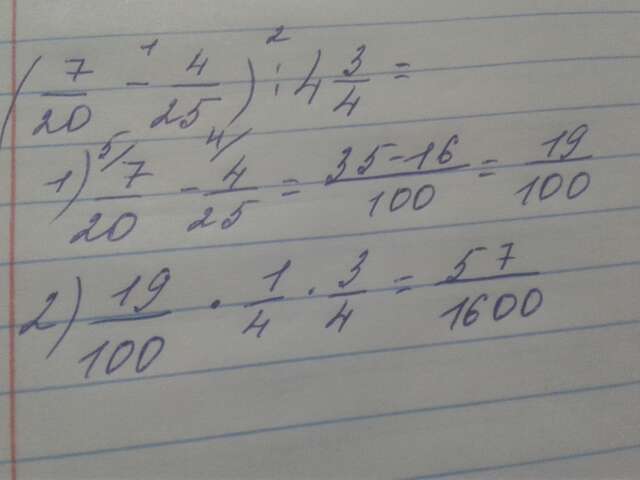 (7/20 ¹- 4/25) ²: 4 3/4 =
1) 7⁵/20 - 4⁴/25 = 35-16/100 = 19/100
2) 19/100 · 1/4 · 3/4 = 57/1600